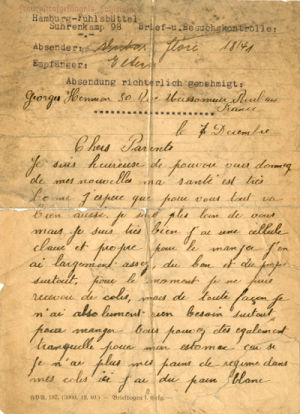 Hamburg-Fuhlsbüttel
Suhrenkamp 98 Brief-u.Besuchskontrolle:
Absender: Flori 1841
Empfänger: Eltern
Absendung richterlich genehmigt:
Georges 50 Rue
France
le 7 Décembre
Chers Parents
Je suis heureuse de pouvoir vous donner
de mes nouvelles ma santé est très
bonne j'espère que pour vous tout va
bien aussi, je suis plus loin de vous
mais je suis très bien j'ai une cellule
claire et propre pour le manger j'en
ai largement assez, du bon et du propre
surtout, pour le moment je ne puis
recevoir de colis, mais de toute façon je
n'ai absolument rien besoin surtout
pour manger vous pouvez être également
tranquille pour mon estomac car si
je n'ai plus mes pains de régime dans
mes colis ici j'ai du pain blanc